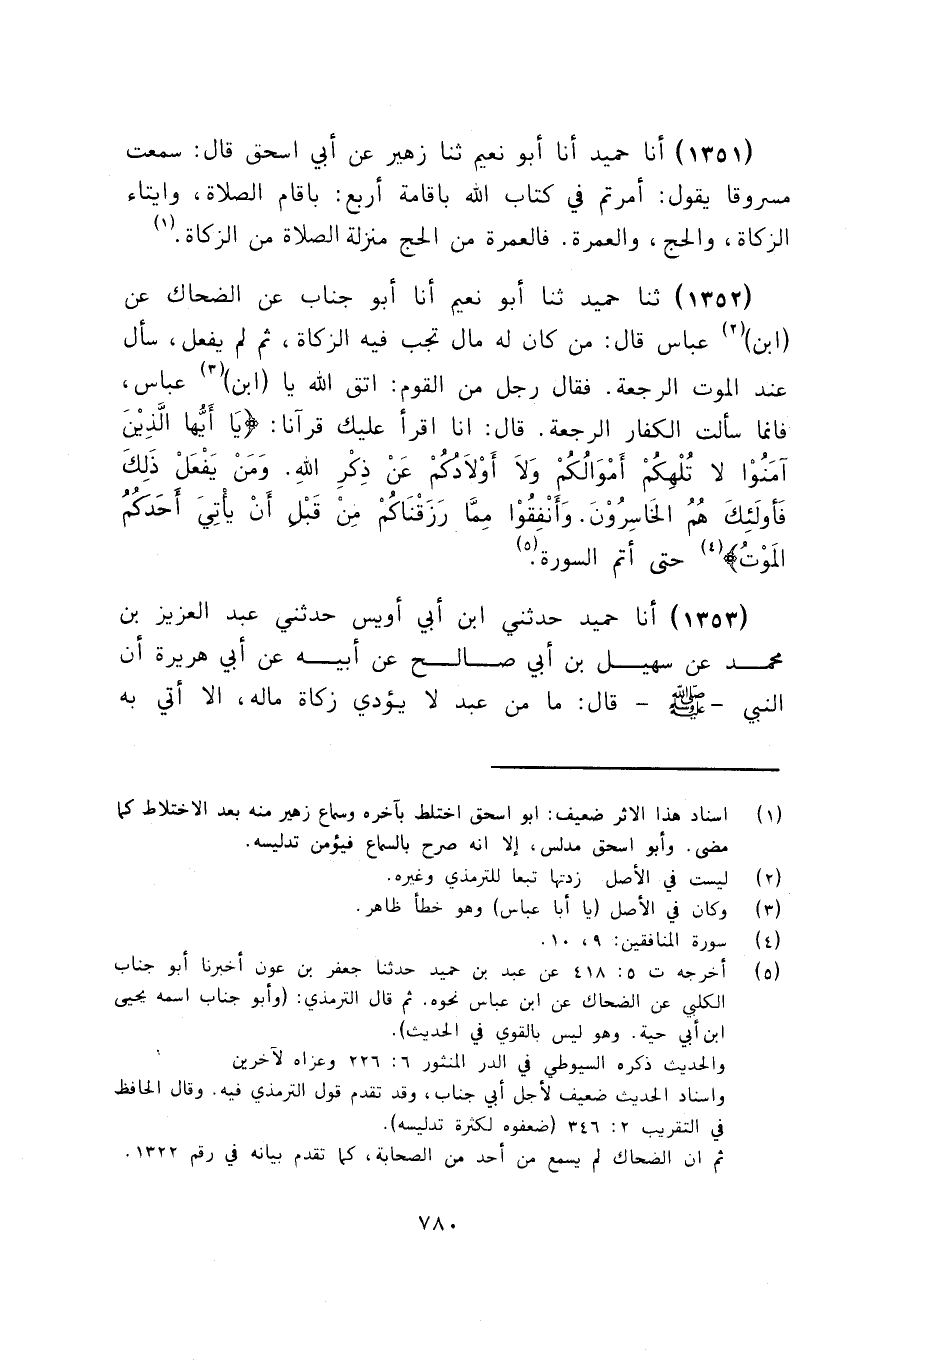 (١٣٥١) أنا حميد أنا أبو نعيم ثنا زهير عن أبي اسحق قال: سمعت
مسروقا يقول: أمرتم في كتاب الله باقامة أربع: باقام الصلاة، وايتاء
الزكاة، والحج، والعمرة. فالعمرة من الحج منزلة الصلاة من الزكاة.(١)
(١٣٥٢) ثنا حميد ثنا أبو نعيم أنا أبو جناب عن الضحاك عن
(ابن)(٢) عباس قال: من كان له مال تجب فيه الزكاة، ثم لم يفعل، سأل
عند الموت الرجعة. فقال رجل من القوم: اتق الله يا (ابن)(٣) عباس،
فانما سألت الكفار الرجعة. قال: انا اقرأ عليك قرآنا: ﴿يَا أَيُّها الَّذِيْنَ
آمَنُوْا لا تُلْهِكُمْ أَمْوَالُكُمْ وَلاَ أَوْلاَدُكُمْ عَنْ ذِكْرِ اللهِ. وَمَنْ يَفْعَلْ ذَلِكَ
فَأُولَئِكَ هُمُ الخَاسِرُوْنَ. وَأَنْفِقُوْا مِمَّا رَزَقْنَاكُمْ مِنْ قَبْلِ أَنْ يأْتِيَ أَحَدَكُمُ
المَوْتُ﴾(٤) حتى أتم السورة.(٥)
(١٣٥٣) أنا حميد حدثني ابن أبي أويس حدثني عبد العزيز بن
محمد عن سهيل بن أبي صالح عن أبيه عن أبي هريرة أن
النبي - ﷺ - قال: ما من عبد لا يؤدي زكاة ماله، الا أتي به
(١) اسناد هذا الاثر ضعيف: ابو اسحق اختلط بآخره وسماع زهير منه بعد الاختلاط كما
مضى. وأبو اسحق مدلس، إلا انه صرح بالسماع فيؤمن تدليسه.
(٢) ليست في الأصل زدتها تبعا للترمذي وغيره.
(٣) وكان في الأصل (يا أبا عباس) وهو خطأ ظاهر.
(٤) سورة المنافقين: ٩، ١٠.
(٥) أخرجه ت ٥: ٤١٨ عن عبد بن حميد حدثنا جعفر بن عون أخبرنا أبو جناب
الكلبي عن الضحاك عن ابن عباس نحوه. ثم قال الترمذي: (وأبو جناب اسمه يحيى
ابن أبي حية. وهو ليس بالقوي في الحديث).
والحديث ذكره السيوطي في الدر المنثور ٦: ٢٢٦ وعزاه لآخرين
واسناد الحديث ضعيف لأجل أبي جناب، وقد تقدم قول الترمذي فيه. وقال الحافظ
في التقريب ٢: ٣٤٦ (ضعفوه لكثرة تدليسه).
ثم ان الضحاك لم يسمع من أحد من الصحابة، كما تقدم بيانه في رقم ١٣٢٢.
٧٨٠